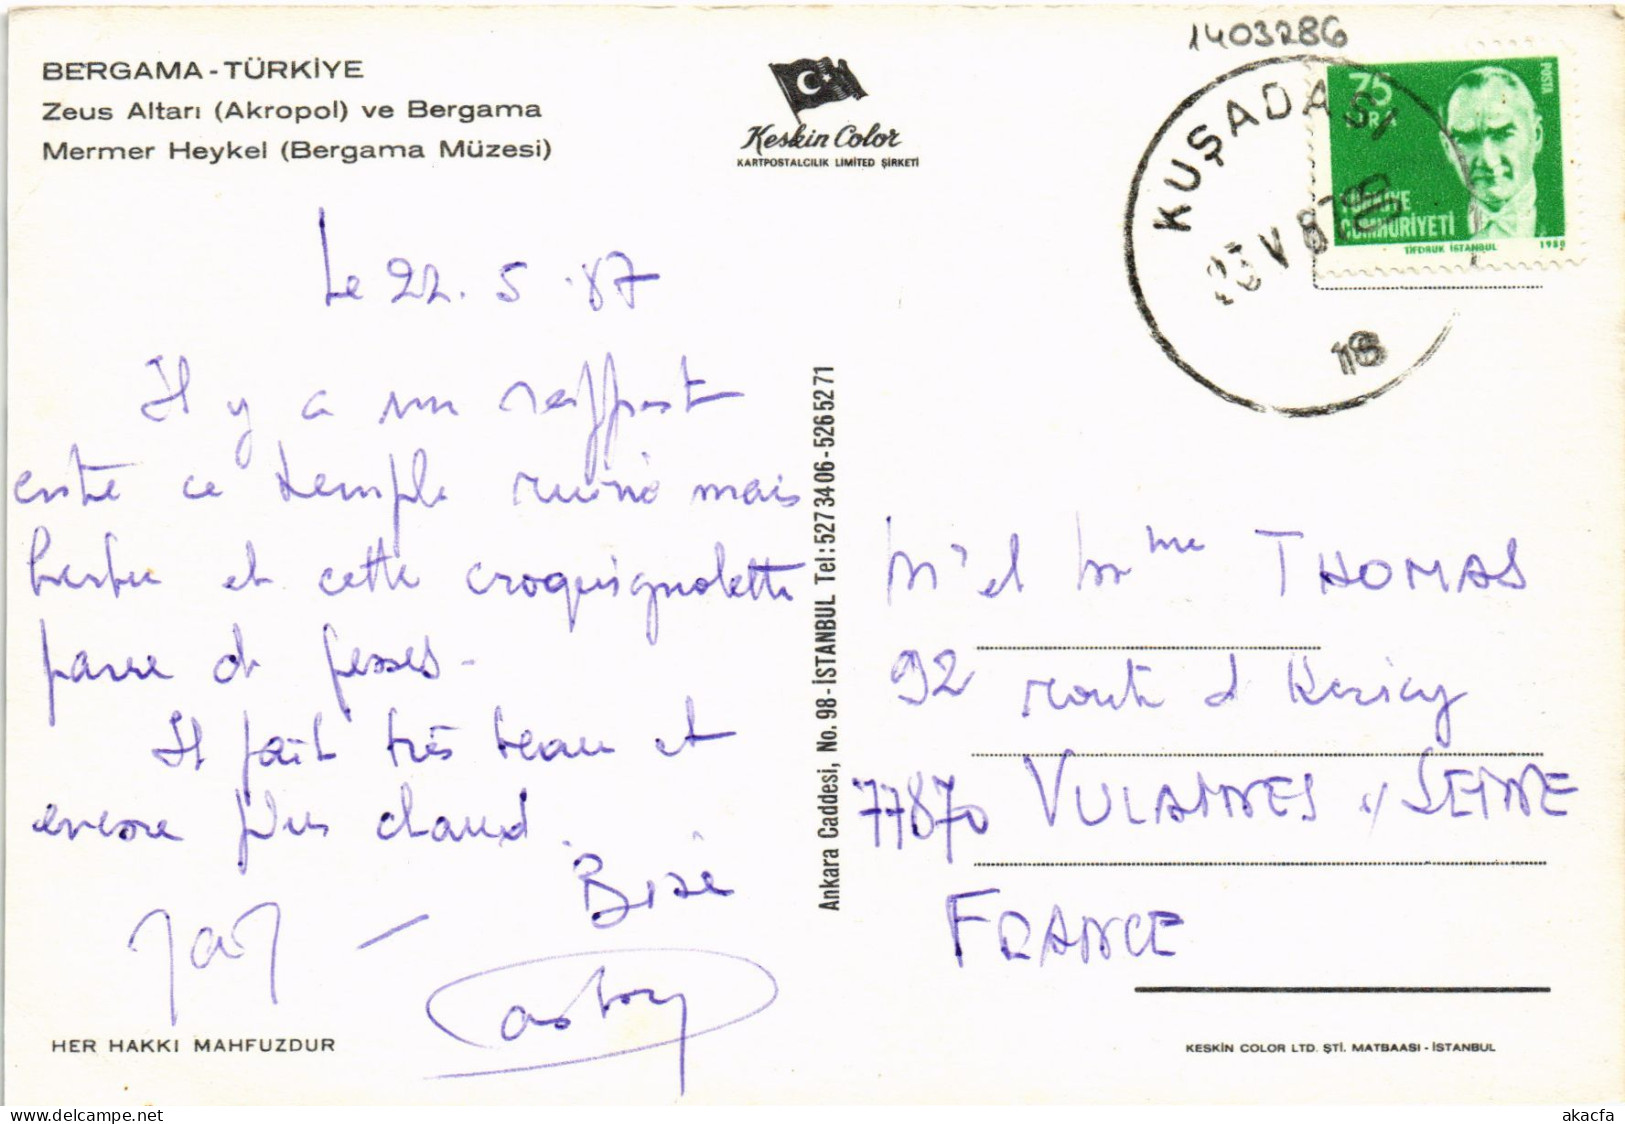 1403286
BERGAMA - TÜRKİYE
Zeus Altarı (Akropol) ve Bergama
Mermer Heykel (Bergama Müzesi)
Keskin Color
KARTPOSTALCILIK LIMITED ŞİRKETİ
KUŞADASI
23 V 87
18
75
LİRA
POSTA
TÜRKİYE
CUMHURİYETİ
TİFDRUK İSTANBUL 1980
Le 22. 5 .87
Il y a un rapport
entre ce temple ruiné mais
herbu et cette croquignolette
paire de fesses.
Il fait très beau et
encore plus chaud.
Bise
Ankara Caddesi, No. 98 - İSTANBUL Tel: 527 34 06 - 526 52 71
Mr et Mme THOMAS
92 route d
77870 VULAINES s/ SEINE
FRANCE
HER HAKKI MAHFUZDUR
KESKİN COLOR LTD. ŞTİ. MATBAASI - İSTANBUL
delcampe.net
akacfa